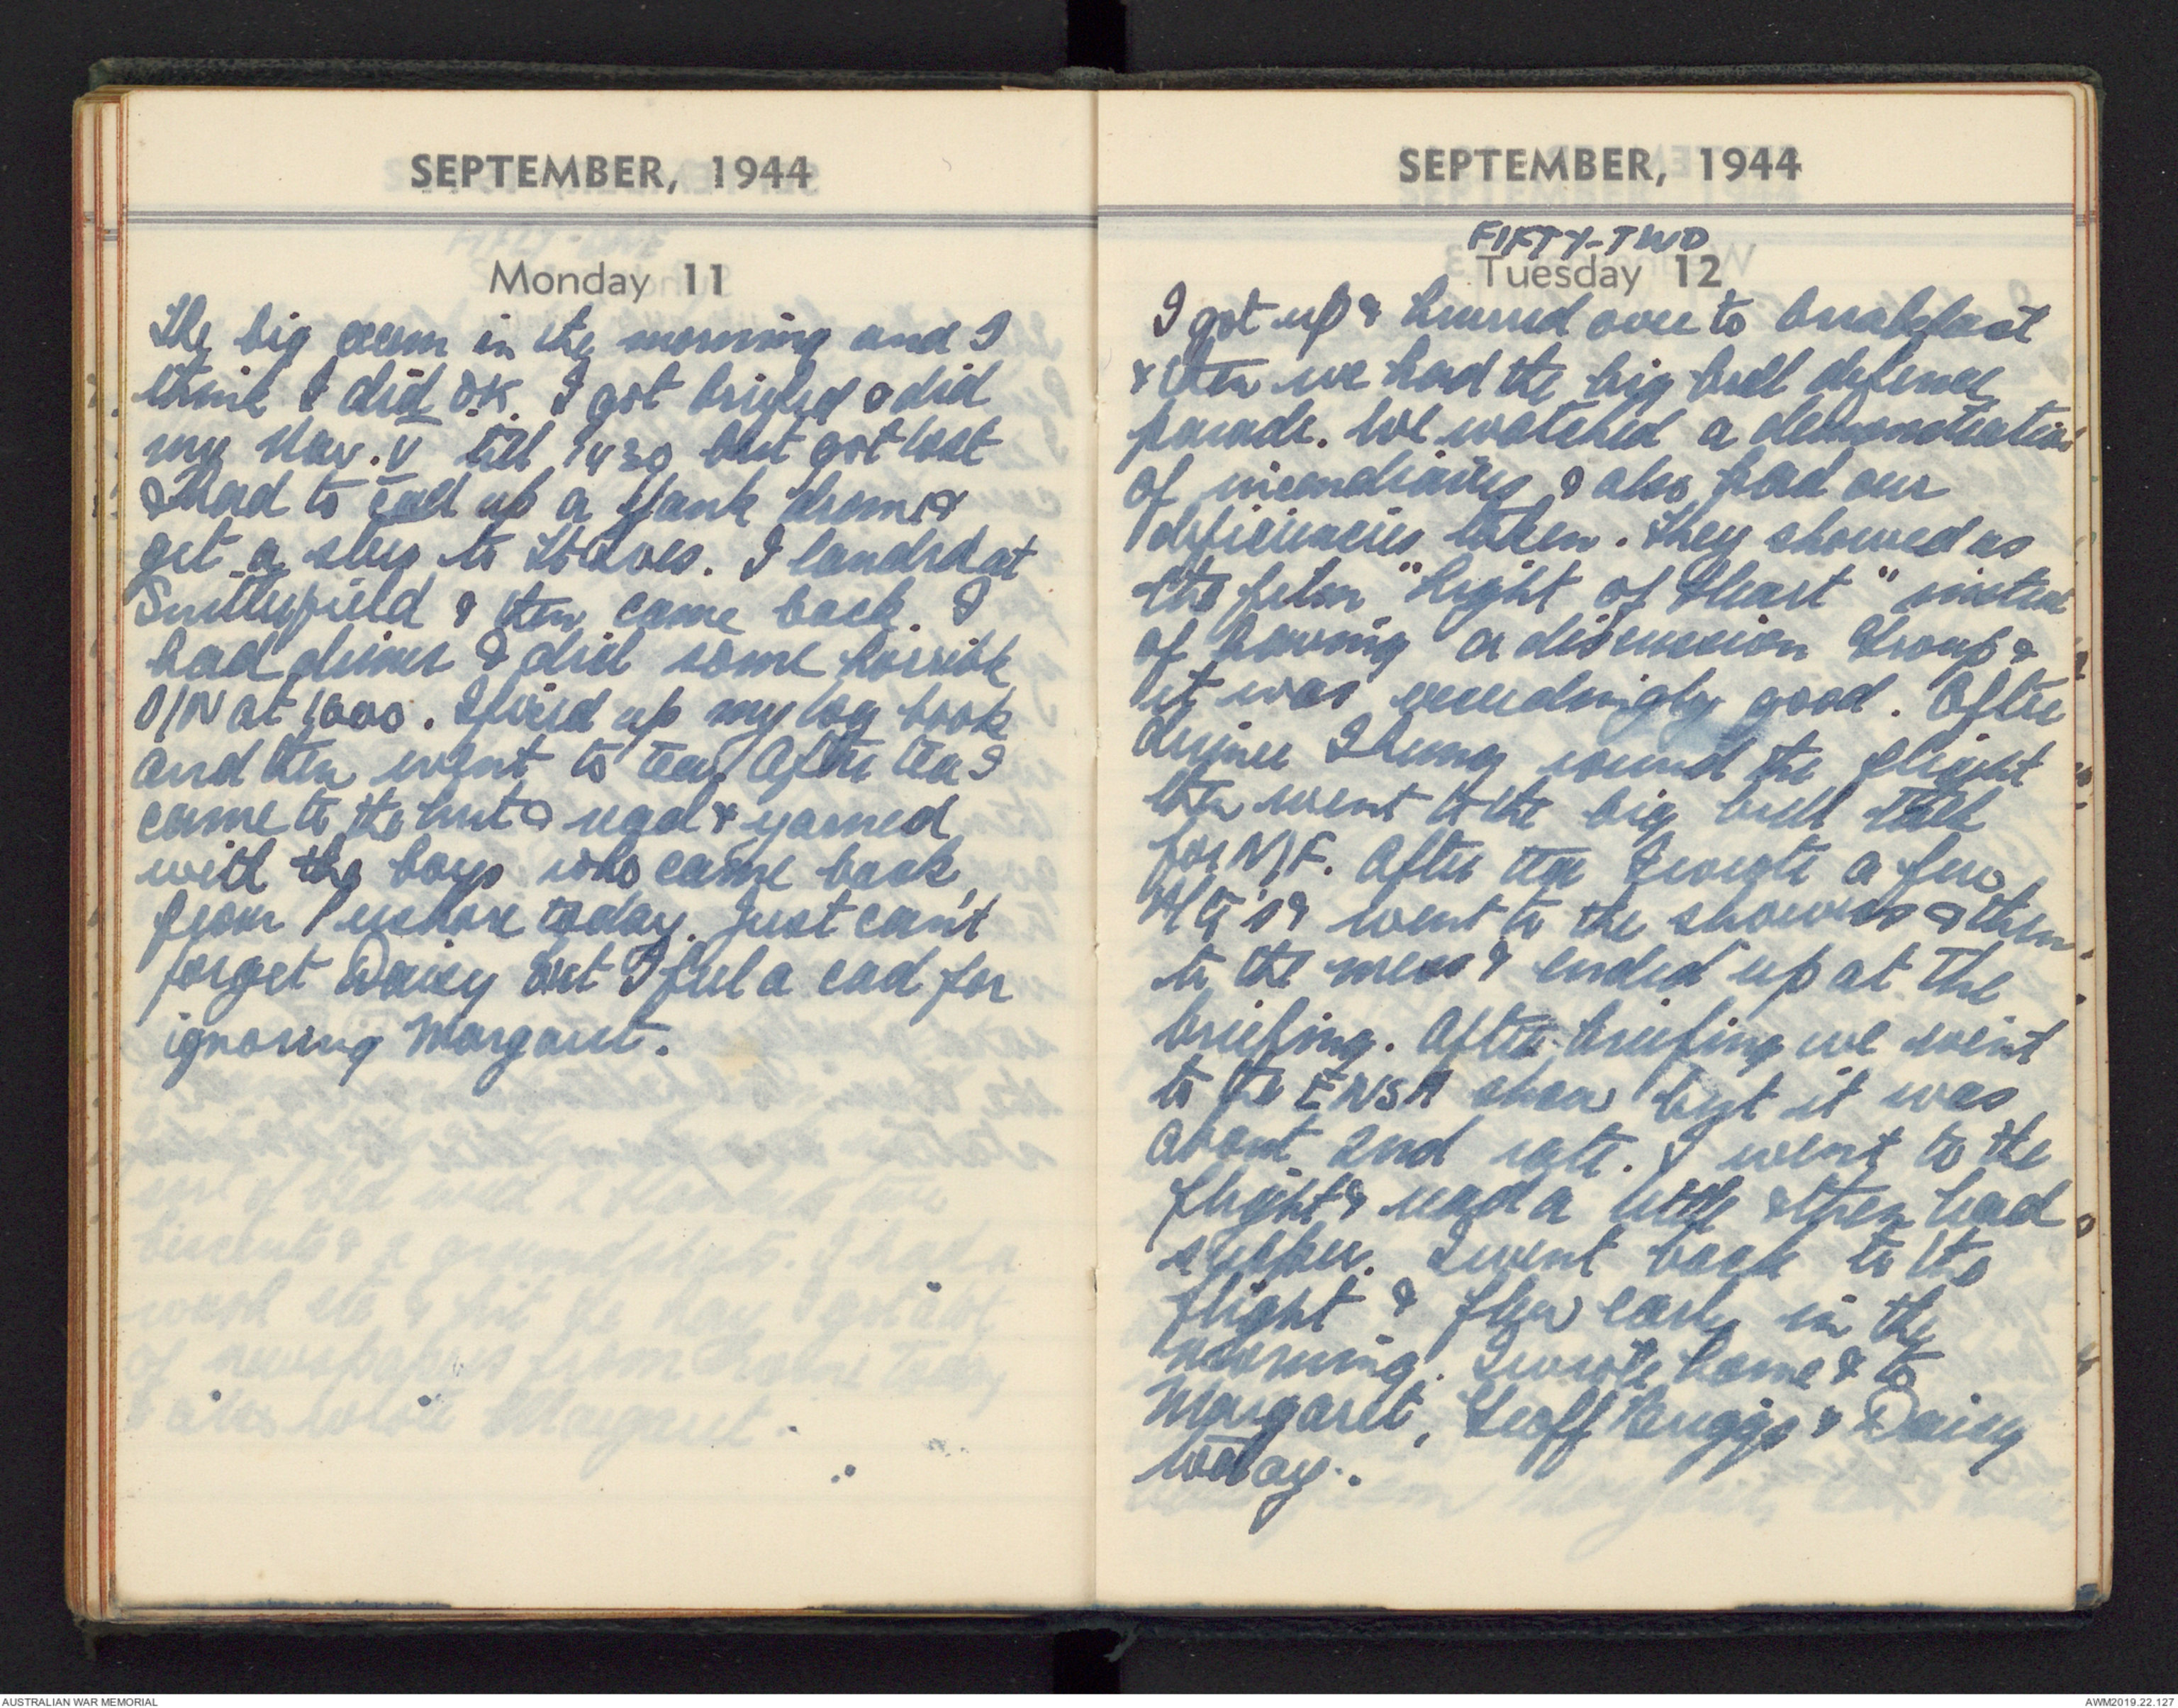 SEPTEMBER, 1944
Monday 11
The big exam in the morning and I
think I did OK. I got briefed & did
my Nav. V till 1430 but got lost
& had to call up a Yank drome &
get a steer to St Eaves. I landed at
Snitterfield & then came back. I
had dinner & did some horrible
D/N at 1600. I fixed up my log book
and then went to tea. After tea I
came to the hut & read & yarned
with the boys who came back
from Pershore today. Just can't
forget Daisy but I feel a cad for
ignoring Margaret.
SEPTEMBER, 1944
FIFTY-TWO
Tuesday 12
I got up & hurried over to breakfast
& then we had the big bull defence
parade. We watched a demonstration
of incendiaries & also had our
deficiencies taken. They showed us
the film "Light of Heart" instead
of having a discussion Group &
it was exceedingly good. After
dinner I hung round the flight
then went to the big bull talk
for N/F. After tea I wrote a few
& went to the showers & then
to the mess & ended up at the
briefing. After briefing we went
to the ENSA show but it was
about 2nd rate. I went to the
flight & read a little & then had
supper. I went back to the
flight & flew early in the
morning. I wrote home & to
Margaret, Geoff Briggs & Daisy
today.
AUSTRALIAN WAR MEMORIAL
AWM2019.22.127